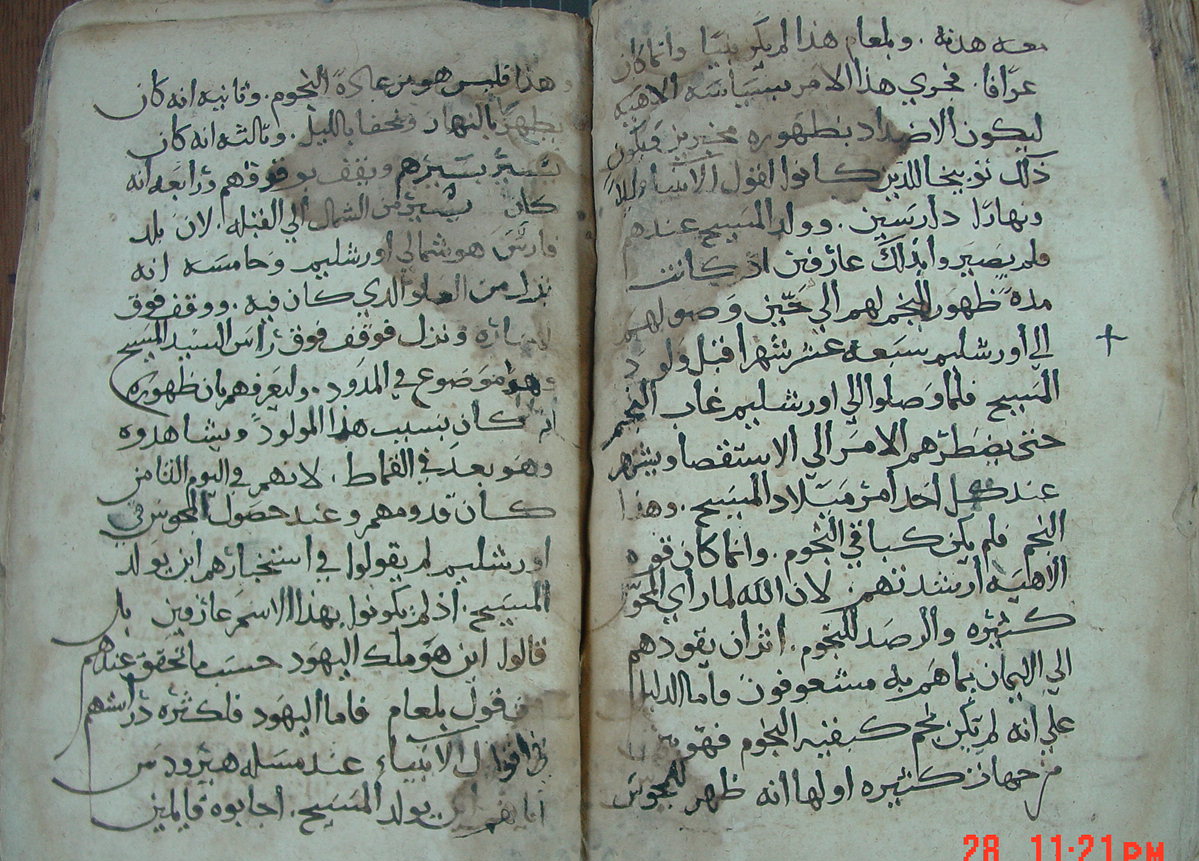 معه هدنة . وبلعام هذا لم يكن نبيا وانما كان
عرافا . فجري هذا الامر بسياسة الاهيه
ليكون الاضداد بظهوره مخبرين فيكون
ذلك توبيخا للذين كانوا لقول الانبيا ليلا
ونهارا دارسين . وولد المسيح عندهم
فلم يصيروا بذلك عارفين اذ كانت
مدة ظهور النجم لهم الي حين وصولهم
الي اورشليم سبعة عشر شهرا قبل ولود
المسيح فلما وصلوا الي اورشليم غاب النجم
حتي يضطرهم الامر الي الاستقصا ويشهر
عند كل احد امر ميلاد المسيح . وهذا
النجم فلم يكن كباقي النجوم . وانما كان قوه
الاهيه ارشدتهم . لان الله لما راي المجوس
كثيره والرصد للنجوم . اثر ان يقودهم
الي اليمان بما هم به مشعوفون واما الدليل
علي انه لم يكن نجم كبقية النجوم فهو
من جهات كثيره اولها انه ظهر للمجوس
وهذا فليس هو من عادة النجوم . وثانيه انه كان
يظهر بالنهار ويخفا بالليل . وثالثه انه كان
يسير بسيرهم ويقف بوقوفهم ورابعه انه
كان يسير من الشمال الي القبله . لان بلد
فارس هو شمالي اورشليم وخامسه انه
نزل من العلو الذي كان فيه . ووقف فوق
ونزل فوقف فوق راس السيد المسيح
وهو موضوع في المدود . وليعرفهم بان ظهوره
انما كان بسبب هذا المولود ويشاهدوه
وهو بعد في القماط . لانهم في اليوم الثامن
كان قدومهم وعند حصول المجوس في
اورشليم لم يقولوا في استخبارهم اين يولد
المسيح . اذ لم يكونوا بهذا الاسم عارفين بل
قالوا اين هو ملك اليهود حسب ما تحقق عندهم
من قول بلعام فاما اليهود فلكثرة دراستهم
في اقوال الانبياء عند مسله هيرودس
اياهم اين يولد المسيح . اجابوه قايلين
28 11:21 PM